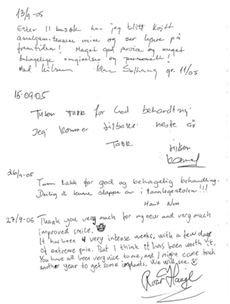 13/9-05
Etter 11 besøk har jeg blitt kvitt
amalgamitennene mine og ser lysere på
framtiden! Meget god service og meget
behagelige omgivelser og personell!
Med hilsen gr. 11/05
15.09.05
Tusen takk for God behandling!
Jeg kommer tilbake neste år
TAKK
hilsen
26/9-05
Tusen takk for god og behagelig behandling.
Deilig å kunne slappe av i tannlegestolen!!!
Hilsen
27/9-05 Thank you very much for my new and very much
improved smile.
It has been 4 very intense weeks, with a few days
of extreme pain. But I think it has been worth it.
You have all been very nice to me, and I might come back
another year to get some implants. We will see.
Roar